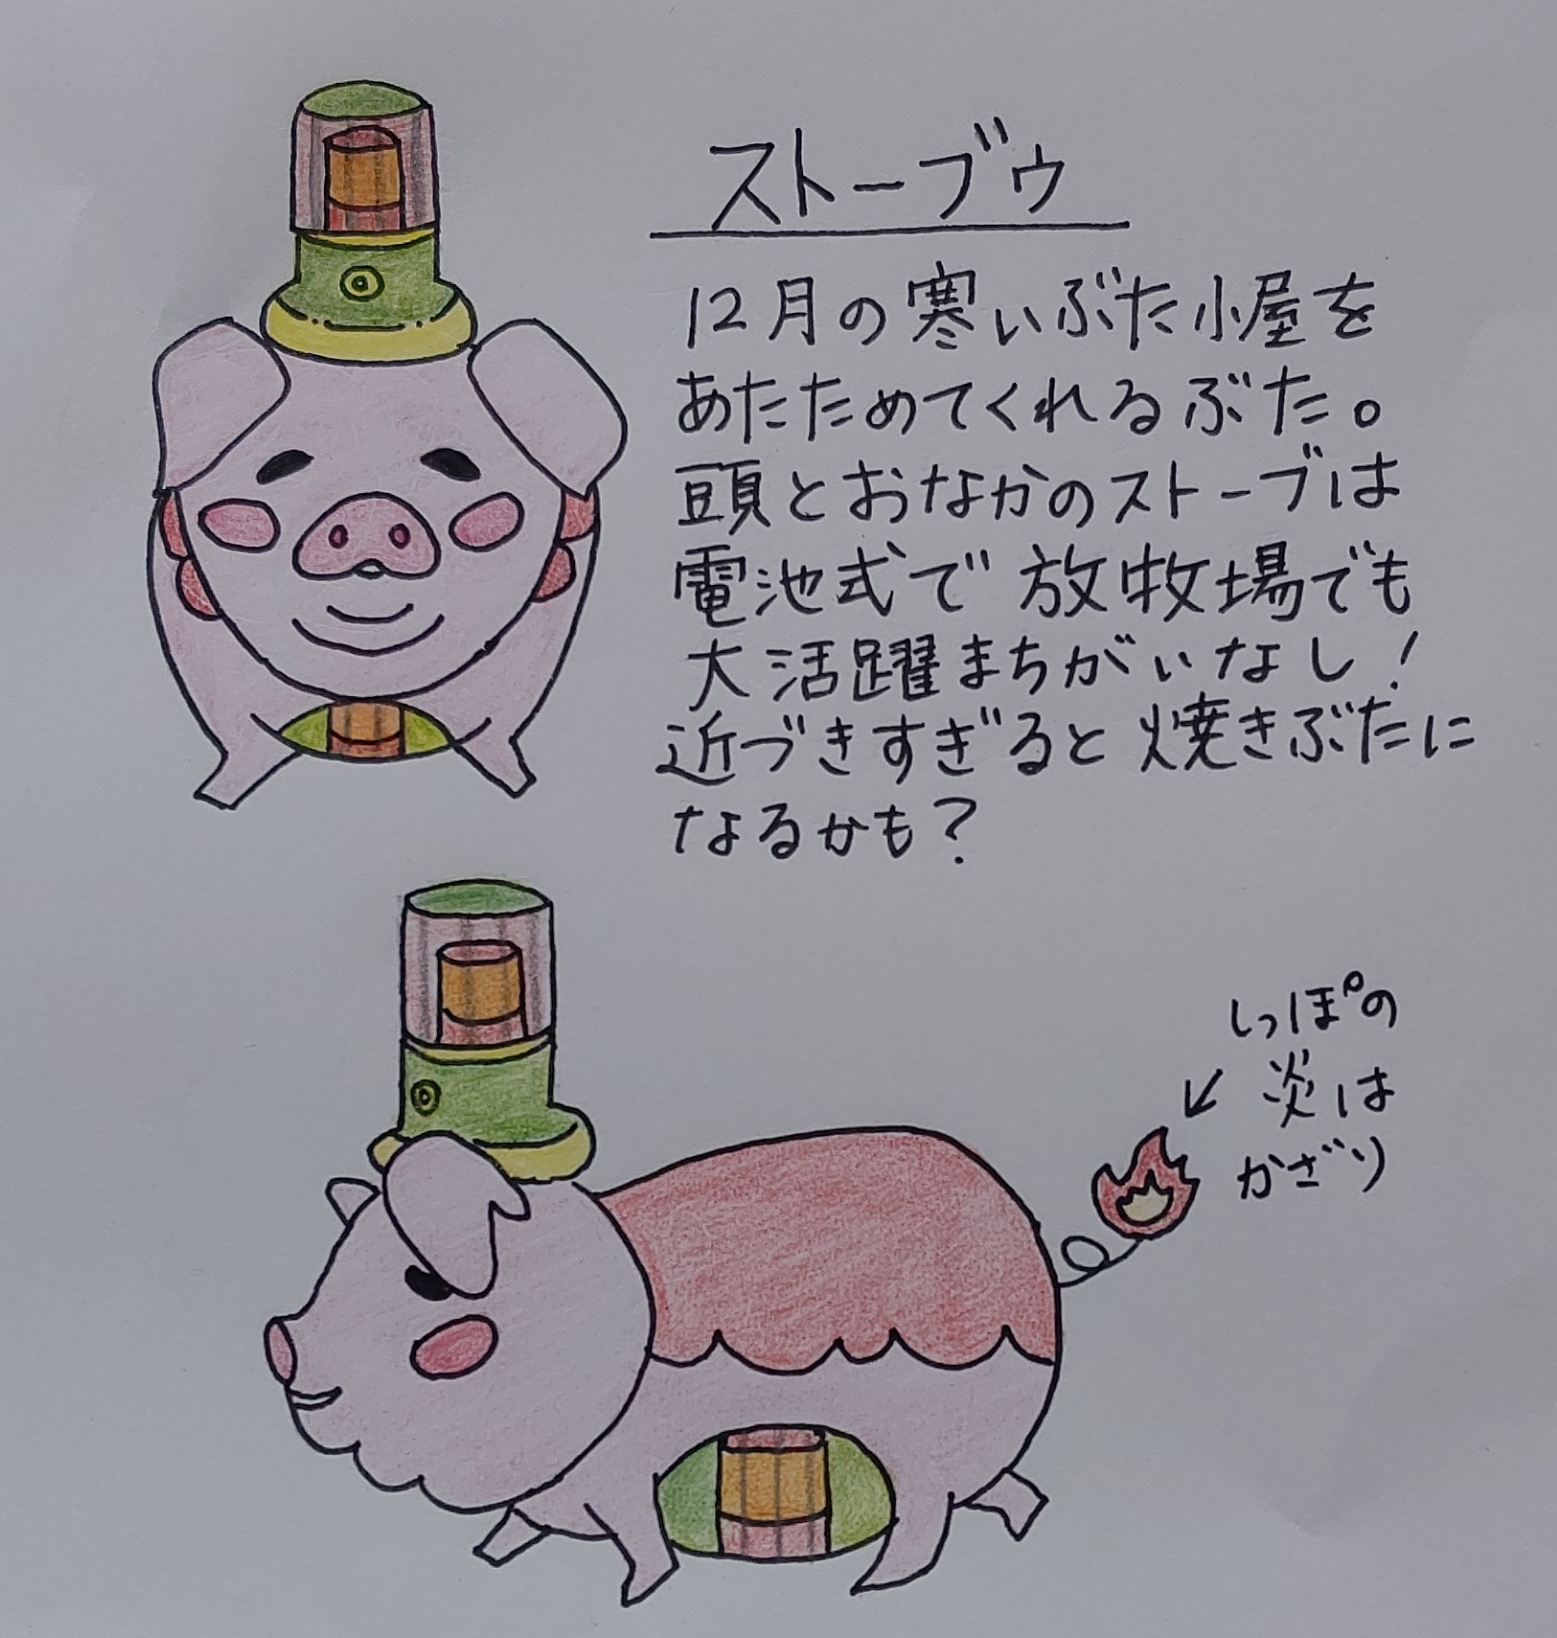 ストーブゥ
12月の寒いぶた小屋を
あたためてくれるぶた。
頭とおなかのストーブは
電池式で放牧場でも
大活躍まちがいなし!
近づきすぎると焼きぶたに
なるかも?
しっぽの
炎は
かざり